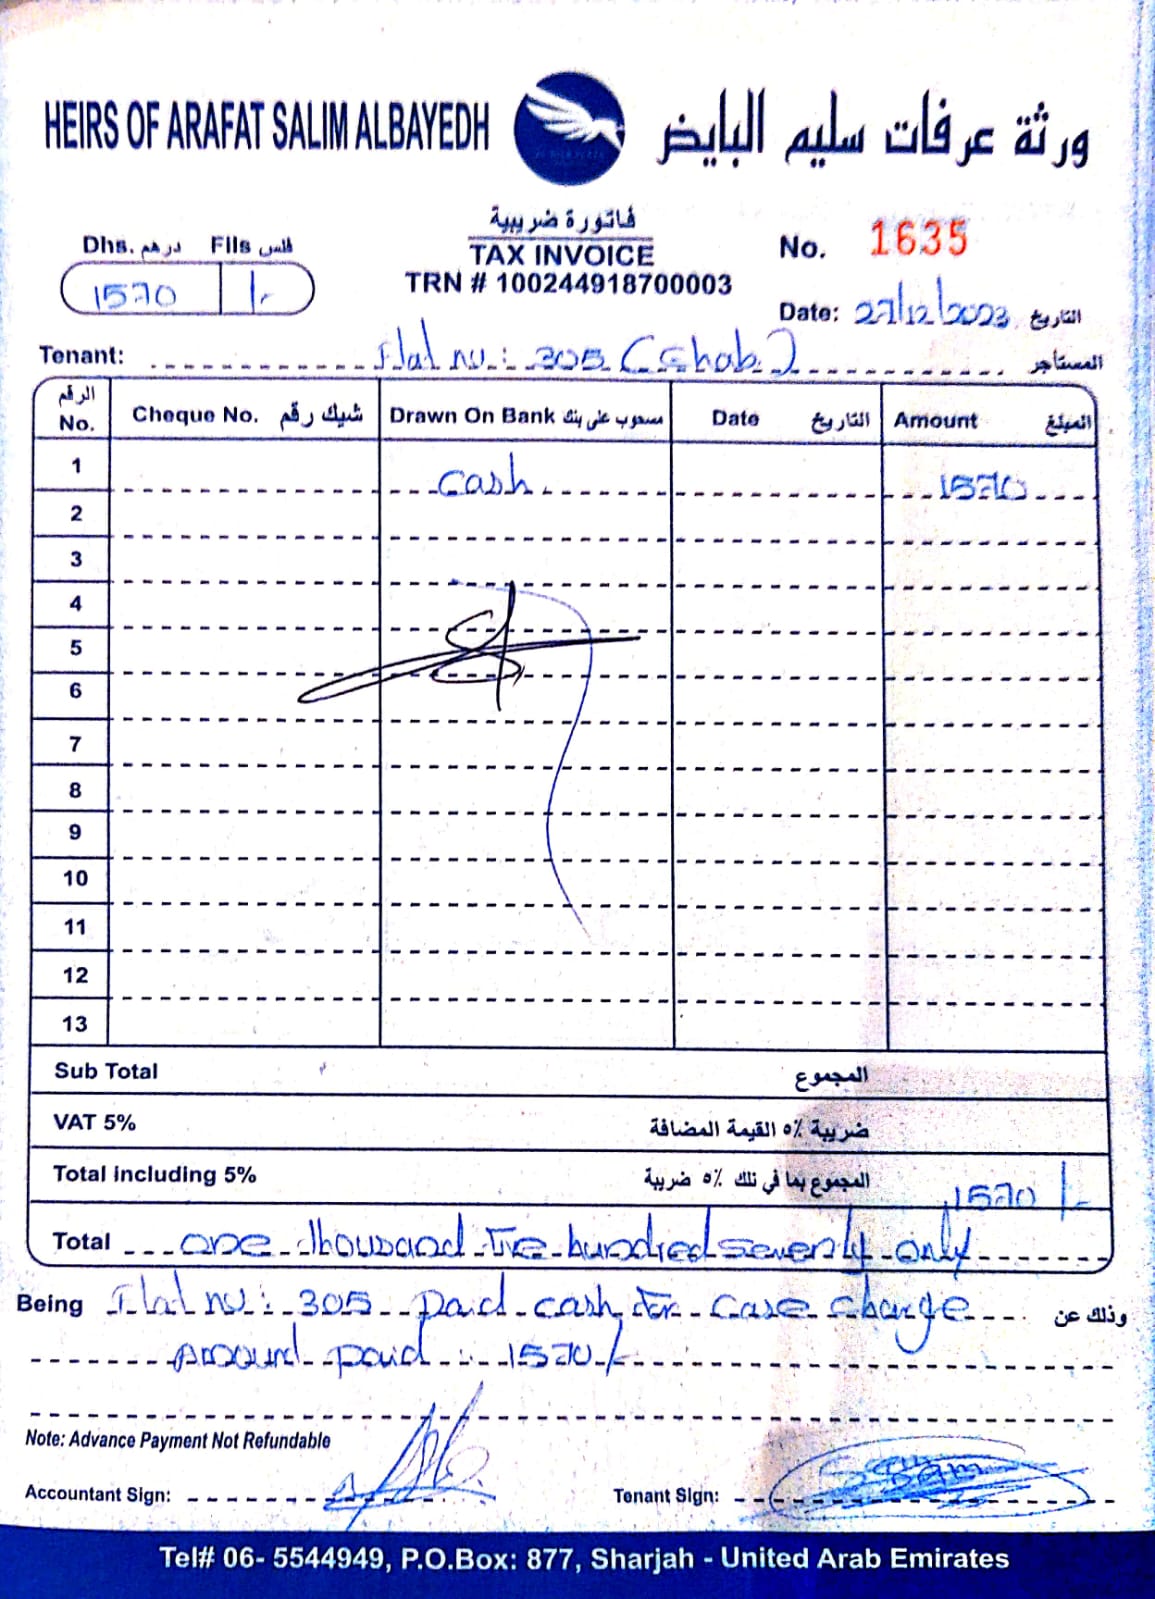 HEIRS OF ARAFAT SALIM ALBAYEDH ورثة عرفات سليم البايض
فاتورة ضريبية
TAX INVOICE
TRN # 100244918700003
Dhs. درهم Fils فلس
1570 /-
No. 1635
Date: 27/12/2023 التاريخ
Tenant: Flat no: 305 (Shab) المستاجر
الرقم No. Cheque No. شيك رقم Drawn On Bank مسحوب على بنك Date التاريخ Amount المبلغ
1 cash 1570
2
3
4
5
6
7
8
9
10
11
12
13
Sub Total المجموع
VAT 5% ضريبة ٥٪ القيمة المضافة
Total including 5% المجموع بما في ذلك ٥٪ ضريبة 1570/-
Total one thousand five hundred seventy only
Being Flat no: 305 paid cash for case charge وذلك عن
Amound paid: 1570/-
Note: Advance Payment Not Refundable
Accountant Sign:
Tenant Sign:
Tel# 06- 5544949, P.O.Box: 877, Sharjah - United Arab Emirates